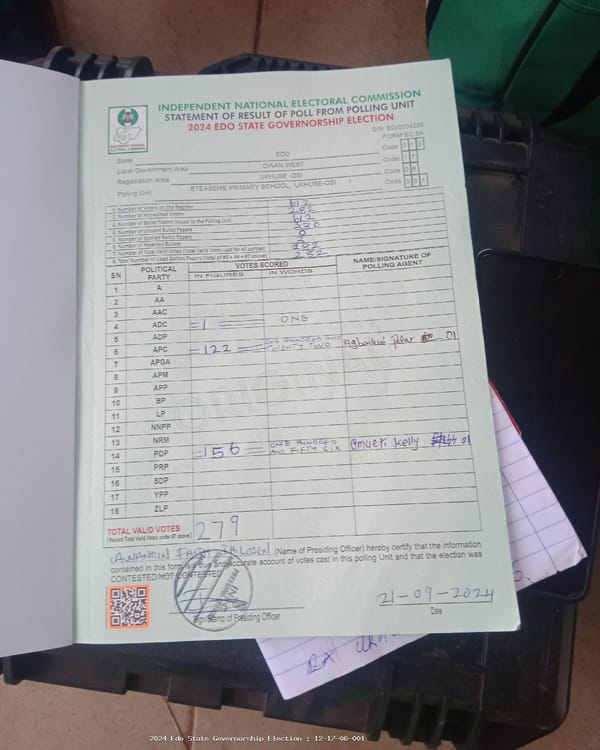 INDEPENDENT NATIONAL ELECTORAL COMMISSION
STATEMENT OF RESULT OF POLL FROM POLLING UNIT
2024 EDO STATE GOVERNORSHIP ELECTION
S/N: EG/0004256
FORM EC 8A
State EDO Code 012
Local Government Area OWAN WEST Code 17
Registration Area UKHUSE-OSI Code 06
Polling Unit ETEASEME PRIMARY SCHOOL, UKHUSE-OSI I Code 001
1. Number of Voters on the Register 612
2. Number of Accredited Voters 282
3. Number of Ballot Papers Issued to the Polling Unit 612
4. Number of Unused Ballot Papers 330
5. Number of Spoiled Ballot Papers 0
6. Number of Rejected Ballots
7. Number of Total Valid Votes (Total Valid Votes cast for all parties) 282
8. Total Number of Used Ballots Papers (Total of #5 + #6 + #7 above) 282
S/N POLITICAL PARTY VOTES SCORED NAME/SIGNATURE OF POLLING AGENT
IN FIGURES IN WORDS
1 A
2 AA
3 AAC
4 ADC =1= ONE
5 ADP
6 APC =122= ONE HUNDRED AND TWENTY TWO 01
7 APGA
8 APM
9 APP
10 BP
11 LP
12 NNPP
13 NRM
14 PDP =156= ONE HUNDRED AND FIFTY SIX Kelly 01
15 PRP
16 SDP
17 YPP
18 ZLP
TOTAL VALID VOTES 279
(Record Total Valid Votes under #7 above)
(Name of Presiding Officer) hereby certify that the information
contained in this form is true and accurate account of votes cast in this polling Unit and that the election was
CONTESTED/NOT CONTESTED
21-09-2024
Sign/Stamp of Presiding Officer Date
2024 Edo State Governorship Election : 12-17-06-001